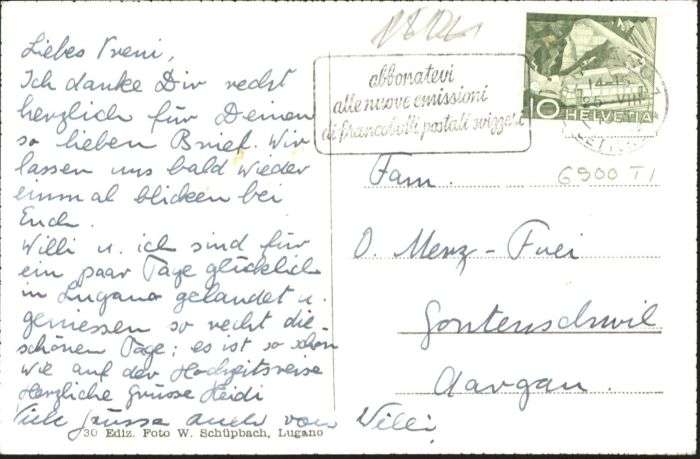 Liebes Vreni,
Ich danke Dir recht
herzlich für Deinen
so lieben Brief. Wir
lassen uns bald wieder
einmal blicken bei
Euch.
Willi u. ich sind für
ein paar Tage glücklich
in Lugano gelandet u.
geniessen so recht die
schönen Tage; es ist so schön
wie auf der Hochzeitsreise
Herzliche Grüsse Heidi
Viele Grüsse auch von Willi
30 Ediz. Foto W. Schüpbach, Lugano
abbonatevi
alle nuove emissioni
di francobolli postali svizzeri
10 HELVETIA
14-15
25 VIII
6900 TI
Fam.
O. Merz-Frei
Gontenschwil
Aargau.